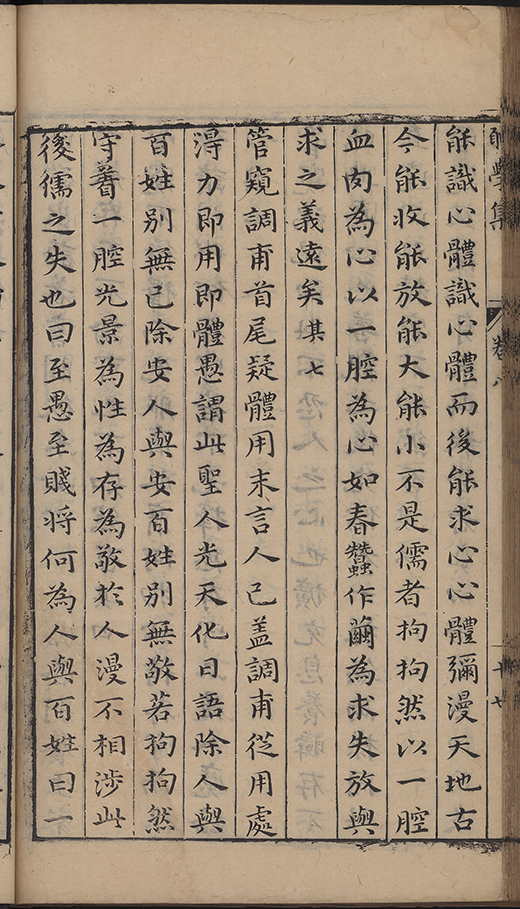 學集 卷八 十七
能識心體識心體而後能求心心體彌漫天地古
今能收能放能大能小不是儒者拘拘然以一腔
血肉為心以一腔為心如春蠶作繭為求失放與
求之義遠矣其七
管窺調甫首尾疑體用末言人己蓋調甫從用處
得力即用即體愚謂此聖人光天化日語除人與
百姓別無己除安人與安百姓別無敬若拘拘然
守着一腔光景為性為存為敬於人漫不相涉此
後儒之失也曰至愚至賤將何為人與百姓曰一